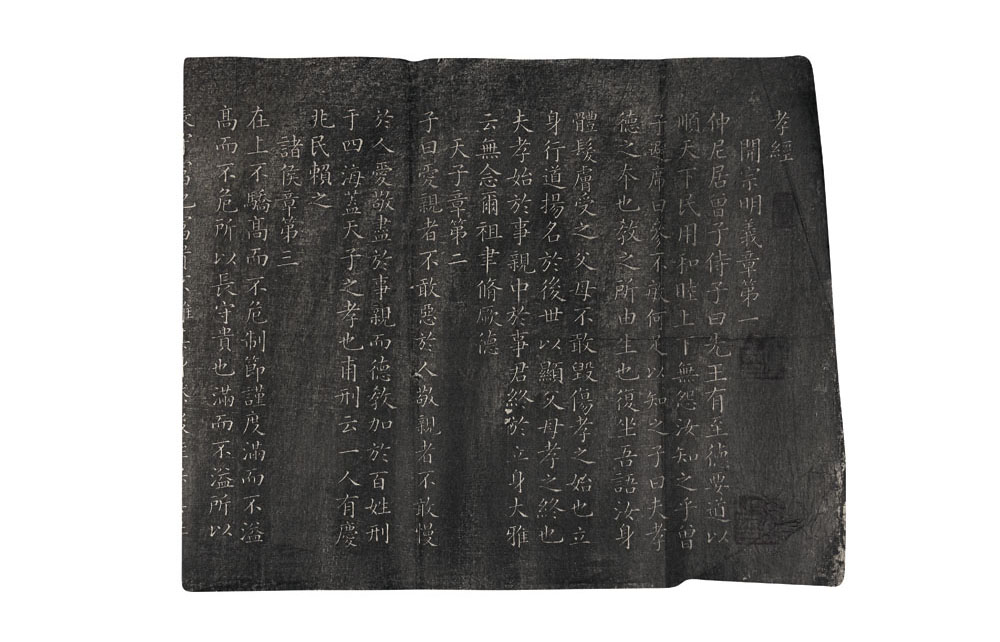 孝經
開宗明義章第一
仲尼居曽子侍子曰先王有至德要道以
順天下民用和睦上下無怨汝知之乎曽
子避席曰參不敏何足以知之子曰夫孝
德之夲也敎之所由生也復坐吾語汝身
體髮膚受之父母不敢毀傷孝之始也立
身行道揚名於後世以顯父母孝之終也
夫孝始於事親中於事君終於立身大雅
云無念爾祖聿脩厥德
天子章第二
子曰愛親者不敢惡於人敬親者不敢慢
於人愛敬盡於事親而德敎加於百姓刑
于四海蓋天子之孝也甫刑云一人有慶
兆民賴之
諸侯章第三
在上不驕髙而不危制節謹度滿而不溢
髙而不危所以長守貴也滿而不溢所以